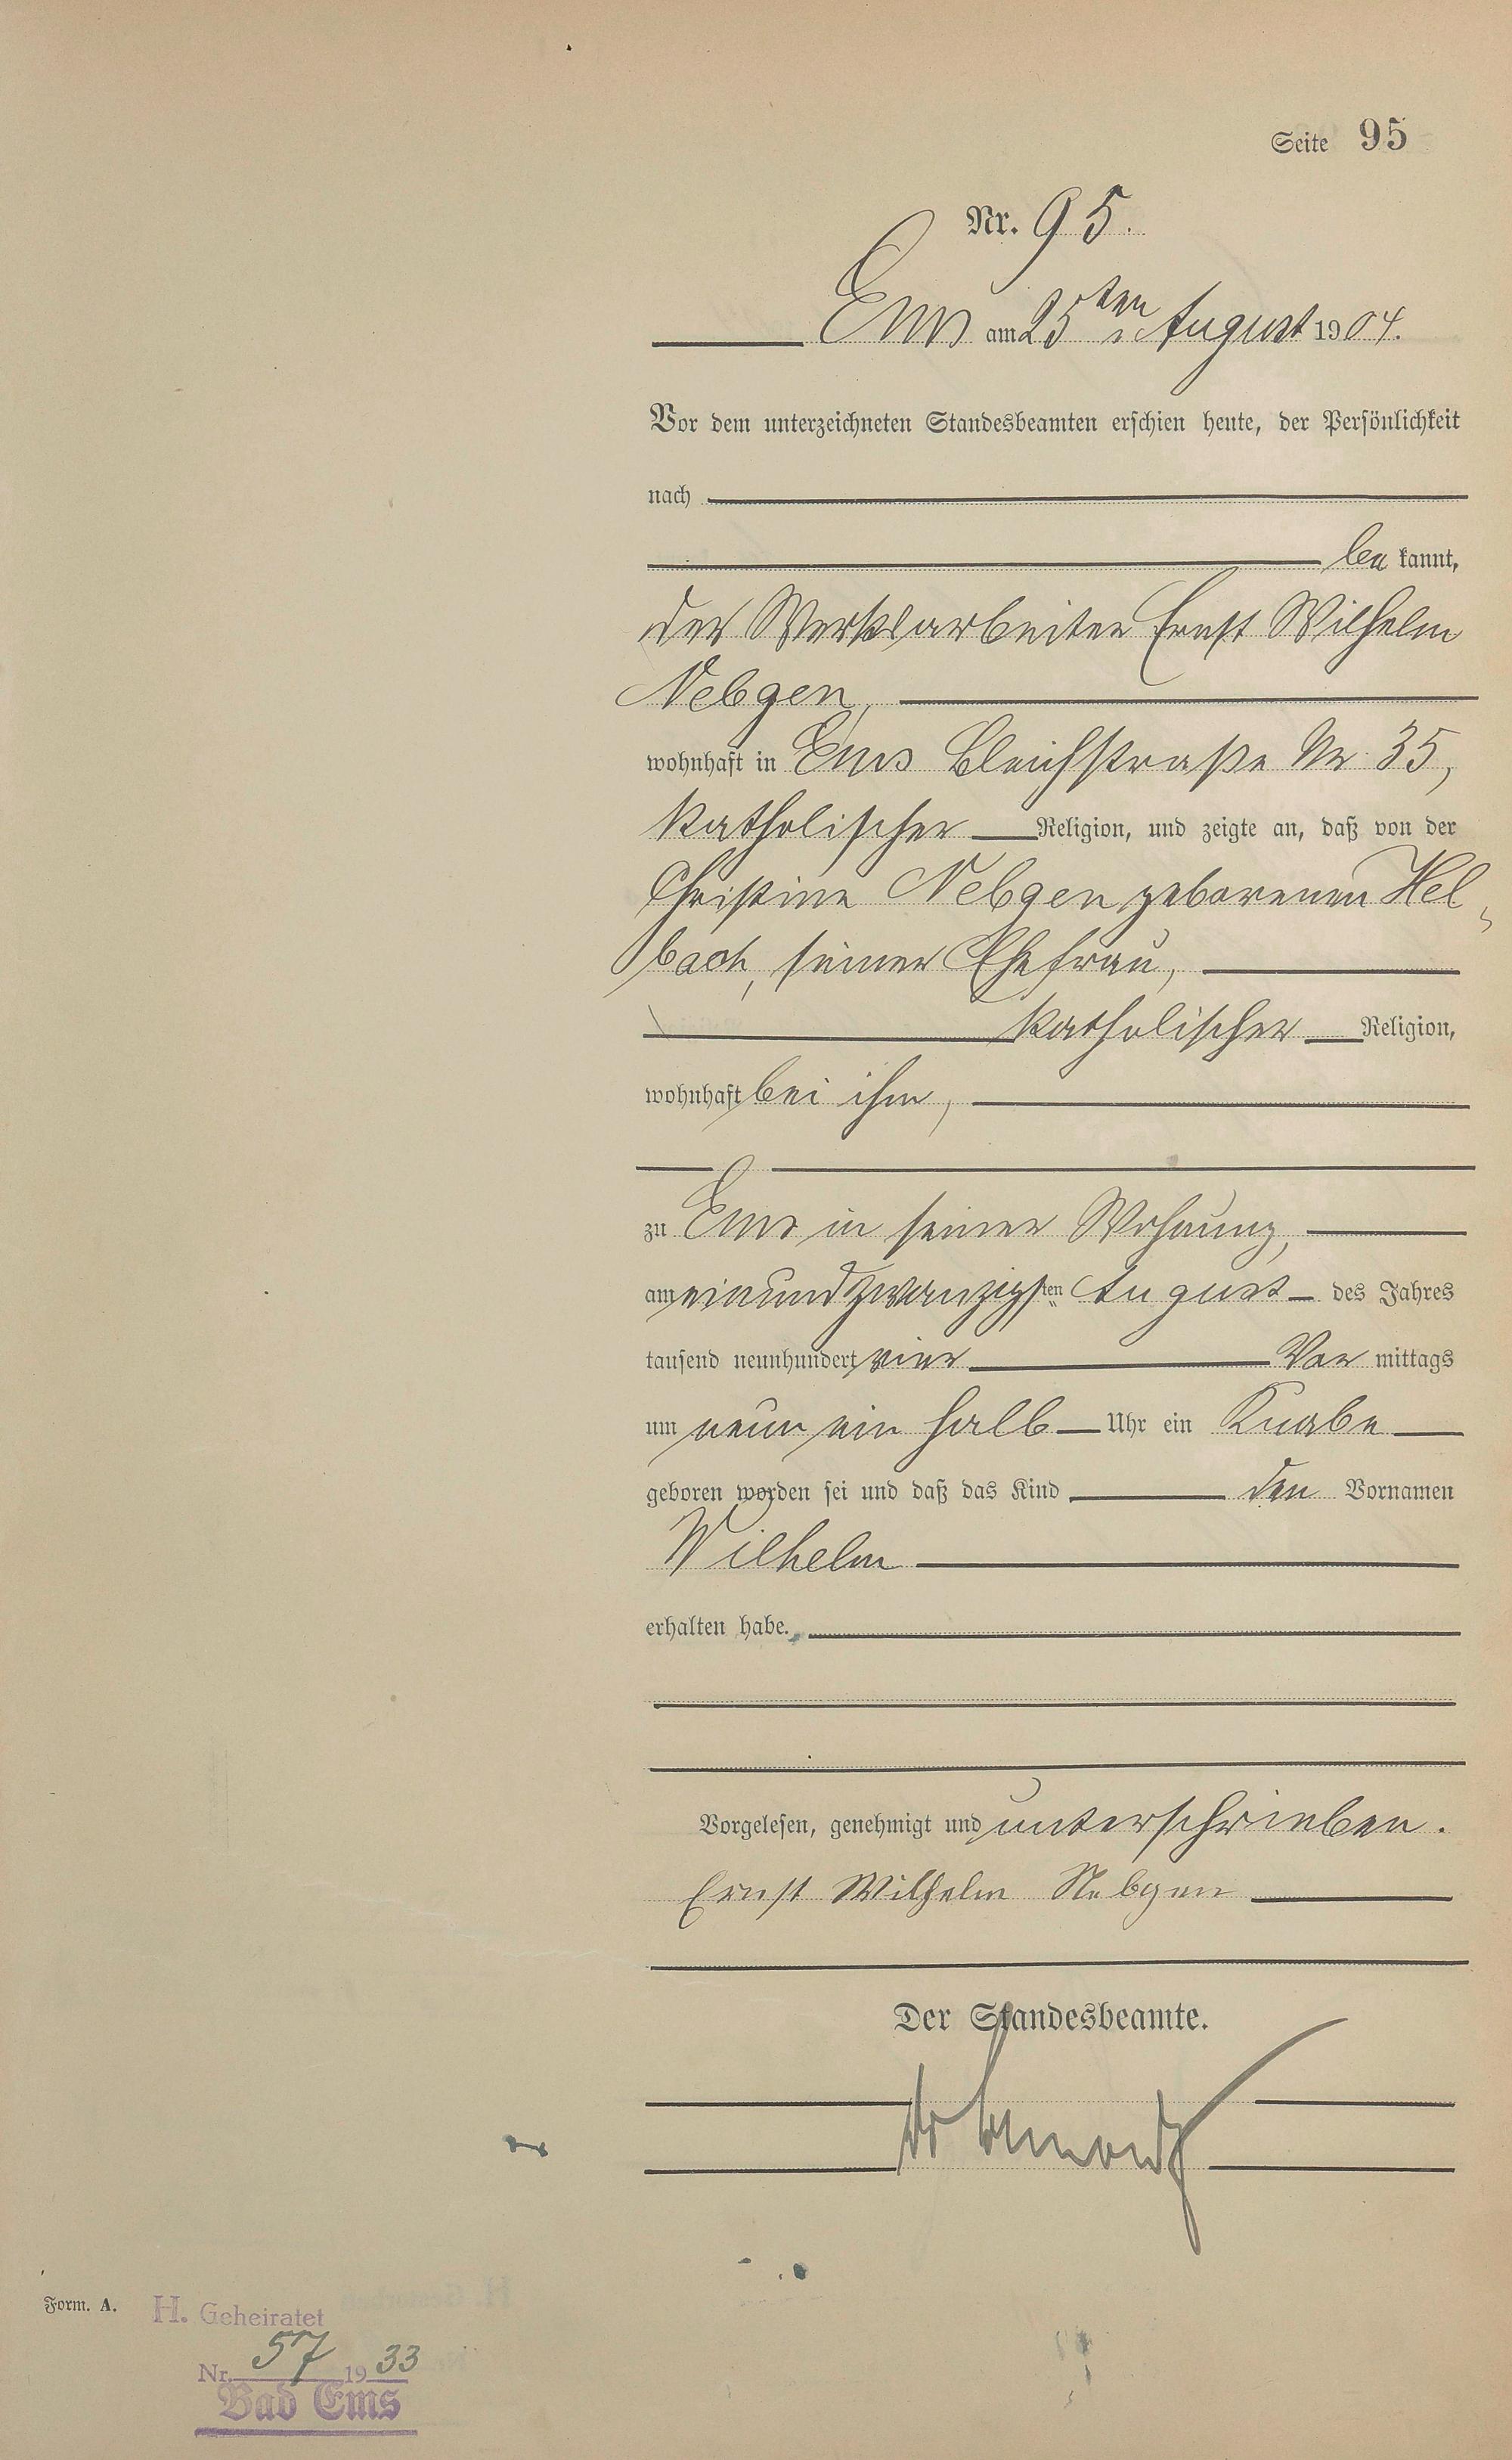 Seite 95
Nr. 95.
Ems am 25ten August 1904.
Vor dem unterzeichneten Standesbeamten erschien heute, der Persönlichkeit
nach
be kannt,
der Werksarbeiter Ernst Wilhelm
Nebgen,
wohnhaft in Ems Bleichstraße Nr 35,
katholischer Religion, und zeigte an, daß von der
Christine Nebgen geborenen Hel
bach, seiner Ehefrau,
katholischer Religion,
wohnhaft bei ihm,
zu Ems in seiner Wohnung,
am einundzwanzigsten August des Jahres
tausend neunhundert vier Vor mittags
um neun ein halb Uhr ein Knabe
geboren worden sei und daß das Kind den Vornamen
Wilhelm
erhalten habe.
Vorgelesen, genehmigt und unterschrieben.
Ernst Wilhelm Nebgen
Der Standesbeamte.
Form. A.
H. Geheiratet
Nr. 57 1933
Bad Ems